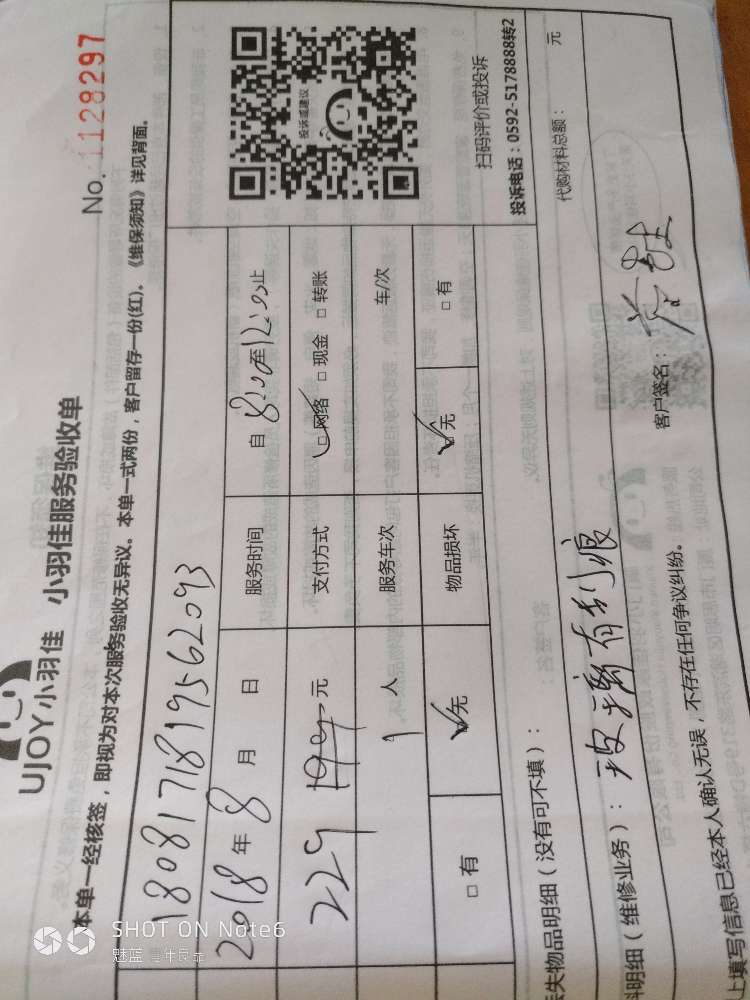 UJOY小羽佳 小羽佳服务验收单
No. 1128297
本单一经核签，即视为对本次服务验收无异议。本单一式两份，客户留存一份(红)。《维保须知》详见背面。
180817181956 2093
2018年8月 日 服务时间 自8:00至12:00止
229 199元 支付方式 □网络 □现金 □转账
1人 服务车次 车/次
□有 □无 物品损坏 □无 □有
投诉或建议
扫码评价或投诉
投诉电话：0592-5178888转2
失物品明细（没有可不填）：
料明细（维修业务）：玻璃有刮痕
代购材料总额： 元
上填写信息已经本人确认无误，不存在任何争议纠纷。
客户签名：
SHOT ON Note6
魅蓝